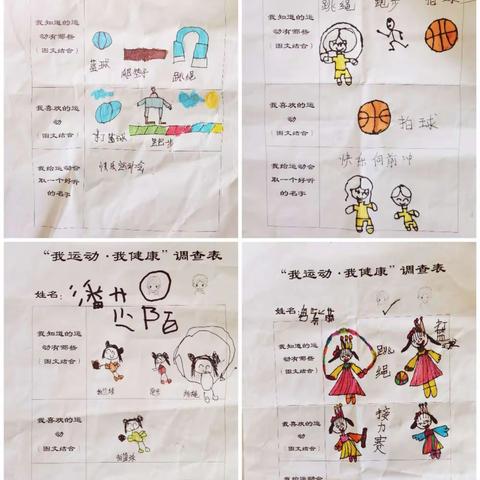 我知道的运
动有哪些
(图文结合)
篮球
跳绳
我喜欢的运
动
(图文结合)
打篮球
跑步
我给运动会
取一个好听
的名字
快乐运动会
跳绳
跑步
拍球
我知道的运
动有哪些
(图文结合)
我喜欢的运
动
(图文结合)
拍球
我给运动会
取一个好听
的名字
快乐向前冲
“我运动·我健康”调查表
姓名：
我知道的运
动有哪些
(图文结合)
拍篮球
跑步
跳绳
我喜欢的运
动
(图文结合)
拍篮球
“我运动·我健康”调查表
姓名
我知道的运
动有哪些
(图文结合)
跳绳
我喜欢的运
动
(图文结合)
接力赛
我给运动会